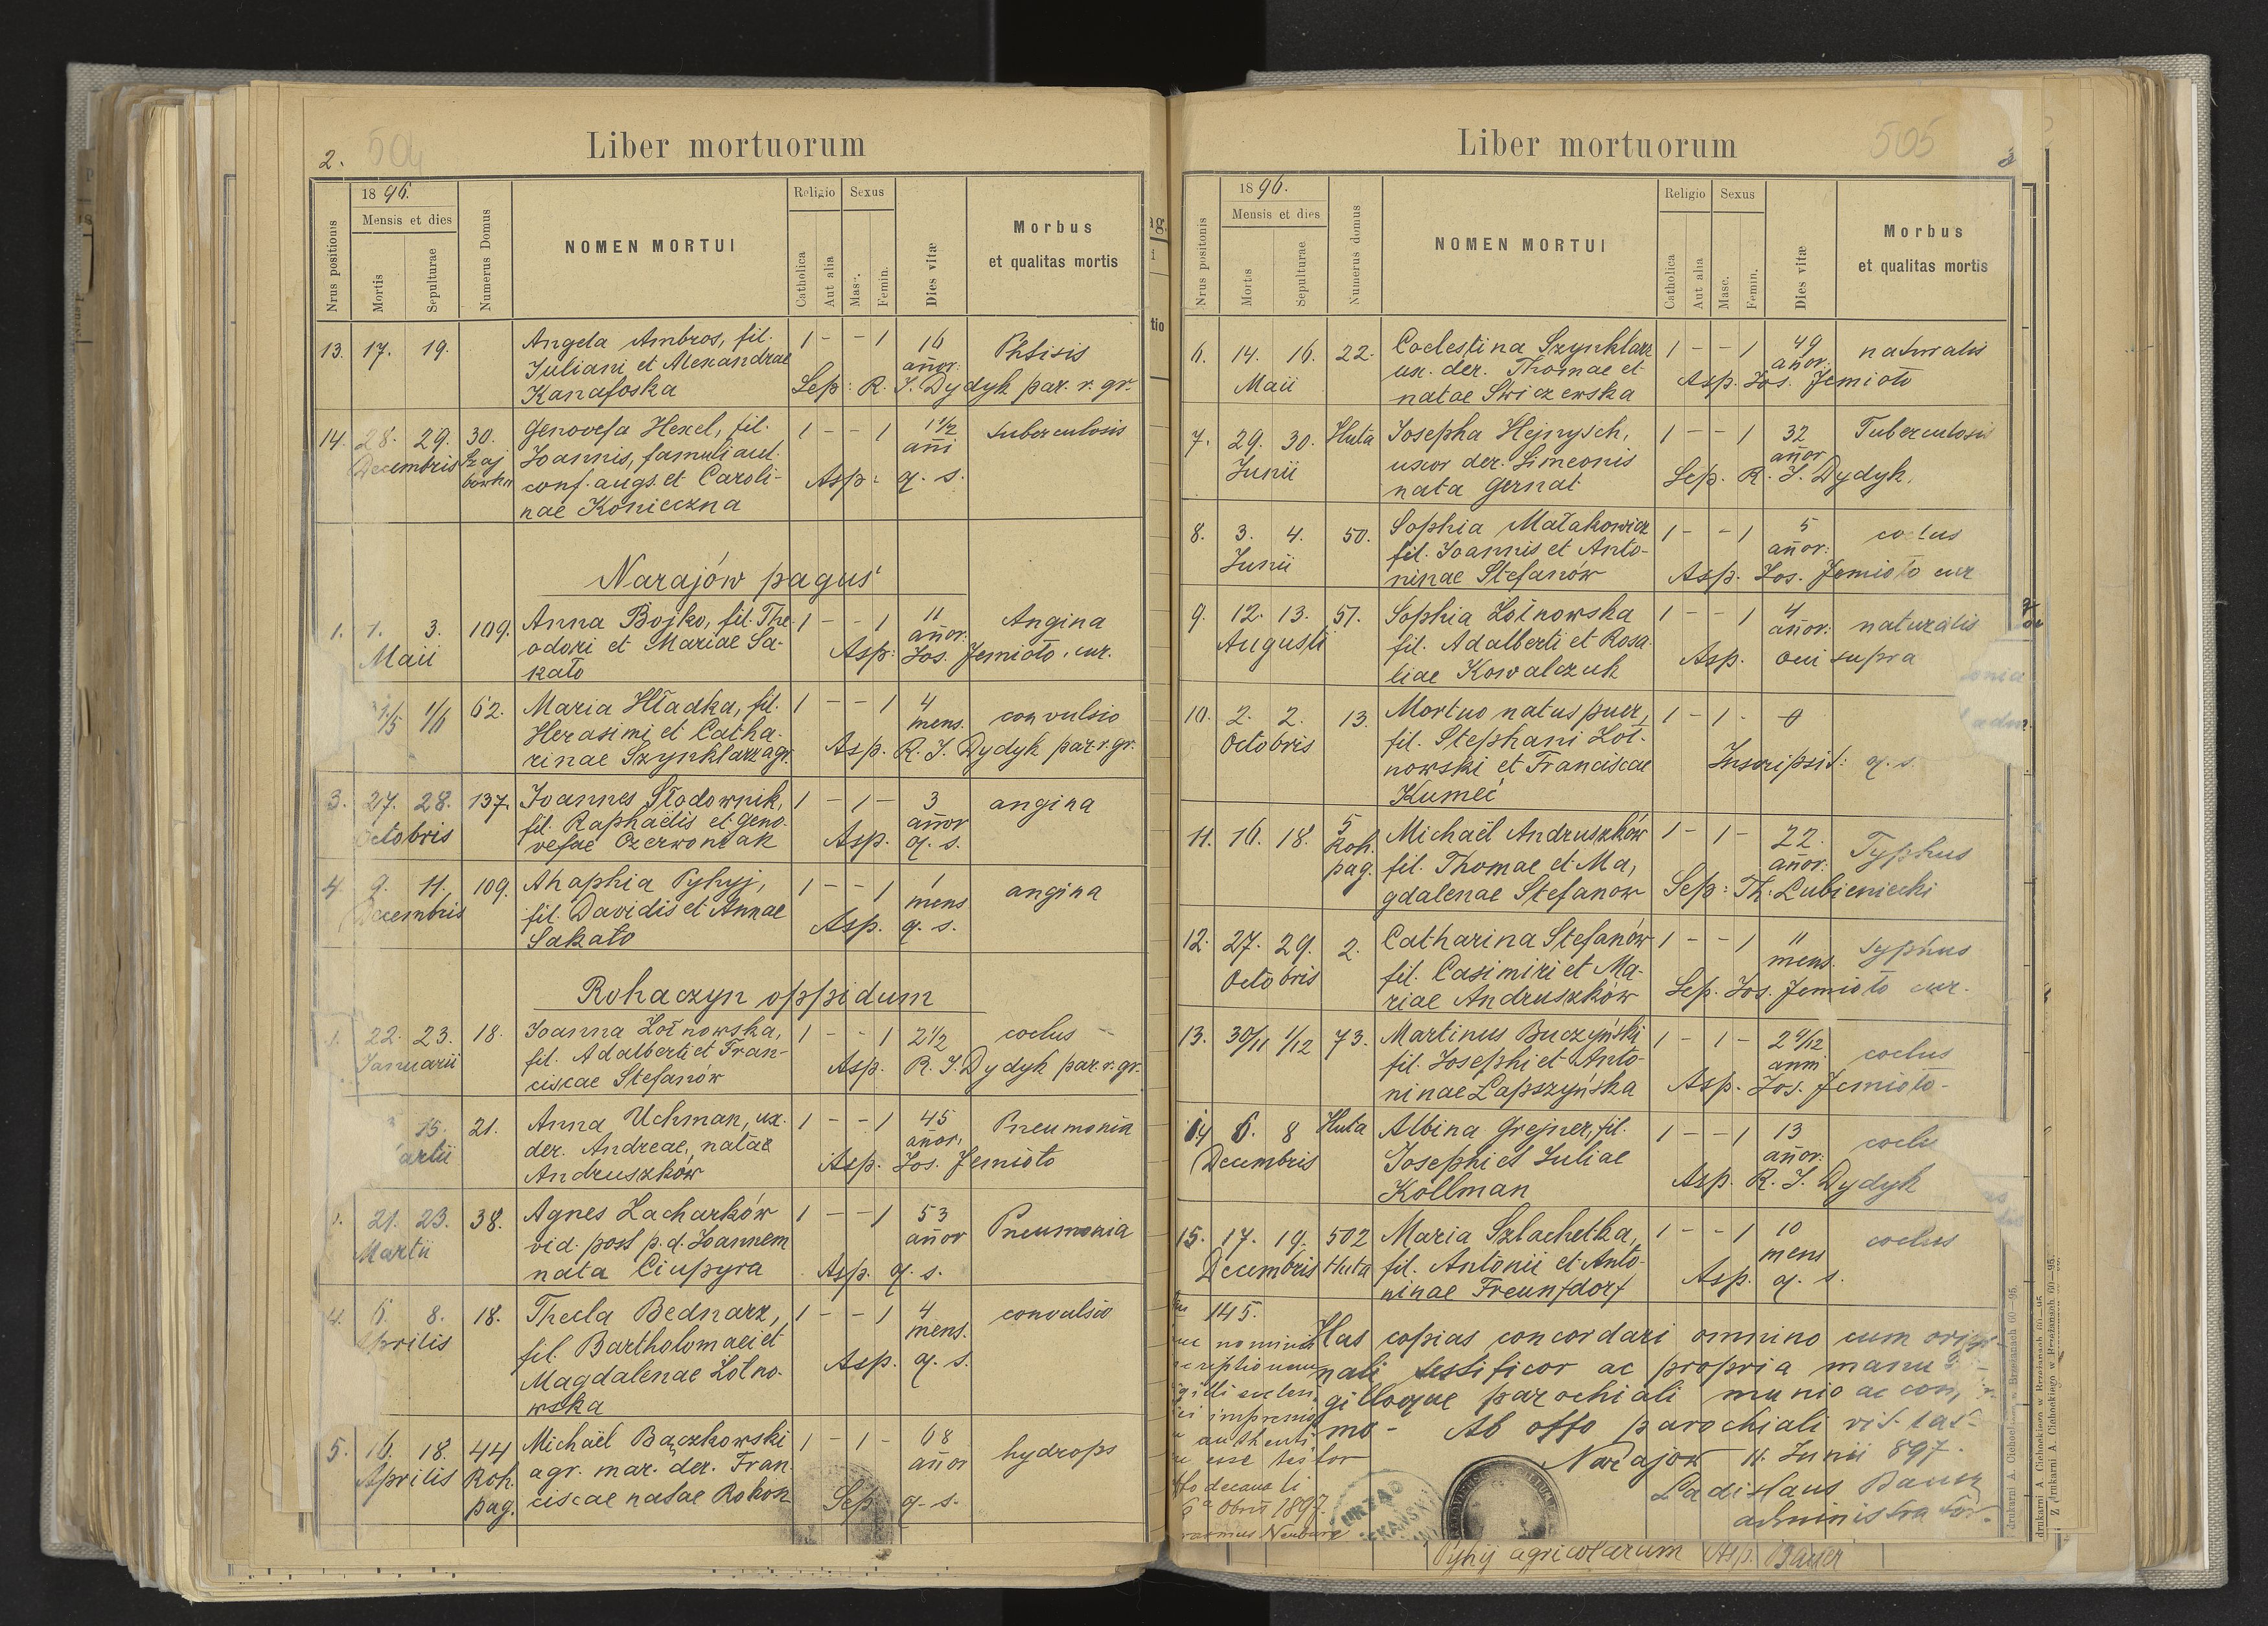 2. 504
Liber mortuorum
Nrus positionis
1896.
Mensis et dies
Mortis
Sepulturae
Numerus Domus
NOMEN MORTUI
Religio
Catholica
Aut alia
Sexus
Masc.
Femin.
Dies vitæ
Morbus
et qualitas mortis
13. 17. 19. Angela Ambros, fil. 1 - - 1 16 Phtisis
Juliani et Alexandrae añor:
Kanafoska Sep: R. J. Dydyk par. r. gr.
14. 28. 29. 30. Genovefa Hexel, fil. 1 - - 1 1 1/2 tuberculosis
Decembris Joannis, famuli aul. añi
conf. augs. et Caroli- Asp: q. s.
nae Konieczna
Narajów pagus
1. 1. 3. 109. Anna Bojko, fil. The- 1 - - 1 11 Angina
Maii odori et Mariae Sa- añor:
kało Asp: Jos. Jemioło, cur.
1/6 62. Maria Hładka, fil. 1 - - 1 4 convulsio
Herasimi et Catha- mens.
rinae Szynklarz agr. Asp. R. J. Dydyk par. r. gr.
3. 27. 28. 137. Joannes Słodownik, 1 - 1 - 3 angina
Octobris fil. Raphaëlis et Geno- añor
vefae Czerwoniak Asp. q. s.
4. 9. 11. 109. Ahaphia Pyhyj, 1 - - 1 1 angina
Decembris fil. Davidis et Annae mens
Sakało Asp. q. s.
Rohaczyn oppidum
1. 22. 23. 18. Joanna Łotnowska, 1 - - 1 2 1/2 coclus
Januarii fil. Adalberti et Fran-
ciscae Stefanów Asp. R. J. Dydyk par. r. gr.
15. 21. Anna Uchman, ux. 1 - - 1 45 Pneumonia
artii der. Andreae, natae añor.
Andruszków Asp. Jos. Jemioło
21. 23. 38. Agnes Zacharków 1 - - 1 53 Pneumonia
Martii vid. post p. d. Joannem añor
nata Ciupyra Asp. q. s.
4. 6. 8. 18. Thecla Bednarz, 1 - - 1 4 convulsio
Aprilis fil. Bartholomaei et mens.
Magdalenae Łotno- Asp. q. s.
wska
5. 16. 18. 44 Michaël Bączkowski 1 - 1 - 68 hydrops
Aprilis Roh. agr. mar. der. Fran- añor
pag. ciscae natae Rokosz Sep q. s.
505
Liber mortuorum
Nrus positonis
1896.
Mensis et dies
Mortis
Sepulturae
Numerus domus
NOMEN MORTUI
Religio
Catholica
Aut alia
Sexus
Masc.
Femin.
Dies vitæ
Morbus
et qualitas mortis
6. 14. 16. 22. Coelestina Szynklarz 1 - - 1 49 naturalis
Maii ux. der. Thomae et añor:
natae Swiczewska Asp. Jos. Jemioło
7. 29. 30. Huta Josepha Hejnysch, 1 - - 1 32 Tuberculosis
Junii uxor der. Simeonis añor
nata Gernat Sep. R. J. Dydyk.
8. 3. 4. 50. Sophia Małakowicz 1 - - 1 5 coclus
Junii fil. Joannis et Anto- añor:
ninae Stefanów Asp. Jos. Jemioło cur
9. 12. 13. 51. Sophia Łotnowska 1 - - 1 4 naturalis
Augusti fil. Adalberti et Rosa- añor:
liae Kowalczuk Asp. qui supra
10. 2. 2. 13. Mortuo natus puer, 1 - 1 - 0
Octobris fil. Stephani Łot-
nowski et Franciscae Inscripsit: q. s.
Kumeć
11. 16. 18. 5 Michaël Andruszków 1 - 1 - 22. Typhus
Roh. fil. Thomae et Ma, añor:
pag. gdalenae Stefanow Sep: Th. Lubieniecki
12. 27. 29. 2. Catharina Stefanów 1 - - 1 11 typhus
Octobris fil. Casimiri et Ma- mens.
riae Andruszków Sep. Jos. Jemioło cur.
13. 30/11 1/12 73. Martinus Buczyński 1 - 1 - 2 4/12 coclus
fil. Josephi et Anto- anni
ninae Łapszyńska Asp. Jos. Jemioło-
14 6. 8 Huta Albina Grejner, fil. 1 - - 1 13 coclu
Decembris Josephi et Juliae añor:
Kollman Asp. R. J. Dydyk
15. 17. 19. 502 Maria Szlachetka, 1 - - 1 10 coclus
Decembris Huta fil. Antonii et Anto- mens
ninae Freundorf Asp. q. s.
145.
Has copias concordari omnino cum origi-
nali testificor ac propria manu
gilloque parochiali munio ac con,
mo- Ab offo parochiali rit. lat.
Narajow 11. Junii 897.
Ladislaus Bauer
administrator.
URZĄD
Pyhij agricolarum Asp. Bauer